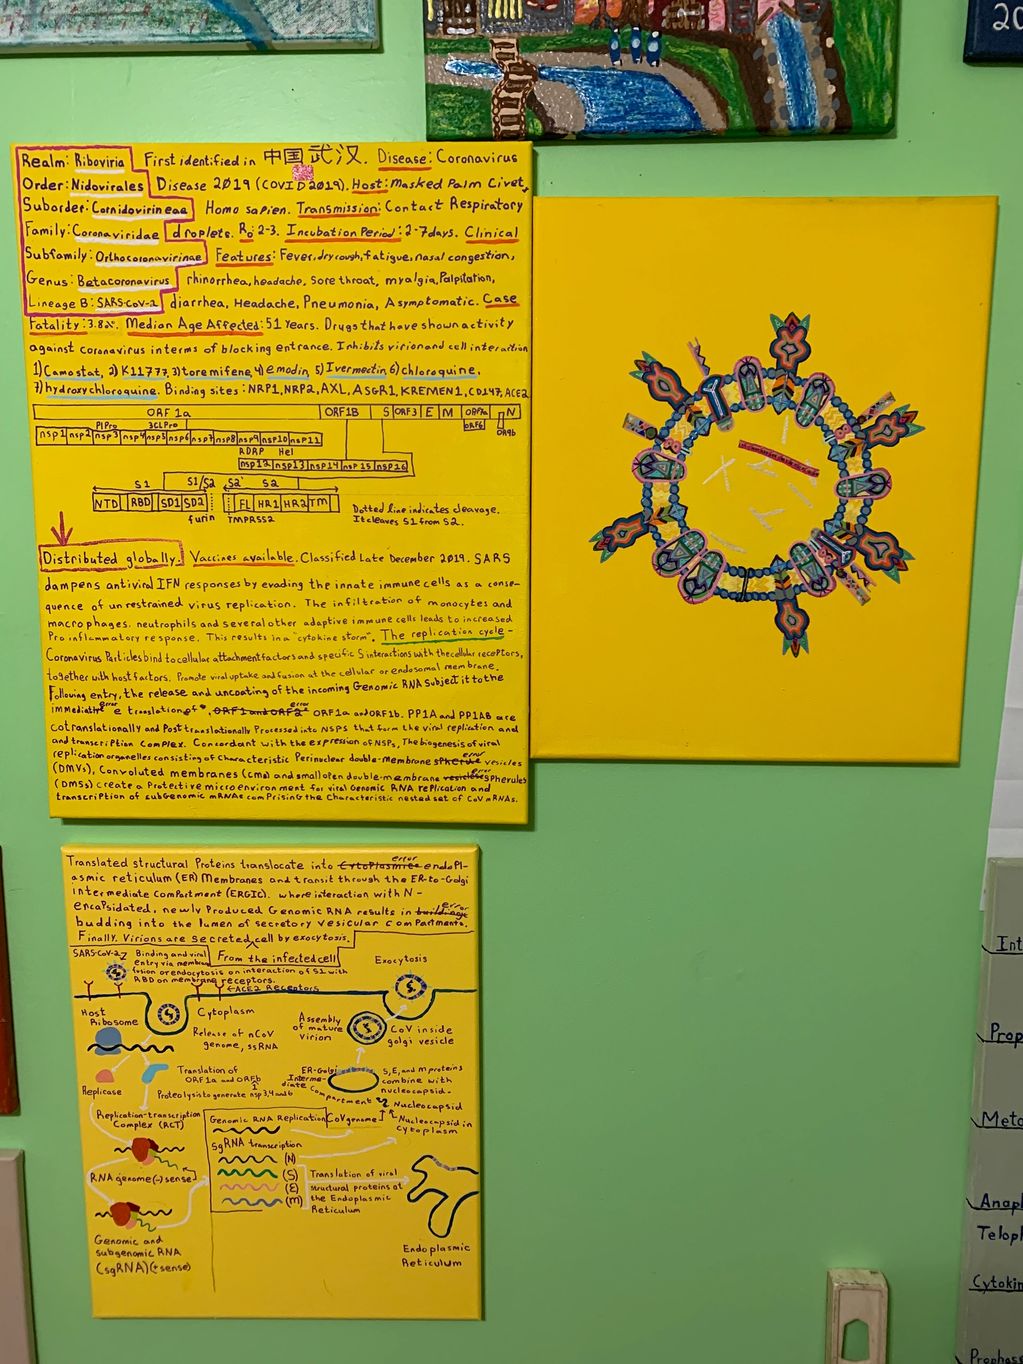 20
Realm: Riboviria First identified in 中国 武汉. Disease: Coronavirus
Order: Nidovirales Disease 2019 (COVID 2019). Host: Masked Palm Civet,
Suborder: Cornidovirineae Homo sapien. Transmission: Contact Respiratory
Family: Coronaviridae droplets. Ro: 2-3. Incubation Period: 2-7days. Clinical
Subfamily: Orthocoronavirinae Features: Fever, dry cough, fatigue, nasal congestion,
Genus: Betacoronavirus rhinorrhea, headache, Sore throat, myalgia, Palpitation,
Lineage B: SARS-CoV-2 diarrhea, Headache, Pneumonia, Asymptomatic. Case
Fatality: 3.8%. Median Age Affected: 51 Years. Drugs that have shown activity
against coronavirus in terms of blocking entrance. Inhibits virion and cell interaction
1) Camostat, 2) K11777, 3) toremifene, 4) emodin, 5) Ivermectin, 6) chloroquine,
7) hydroxychloroquine. Binding sites: NRP1, NRP2, AXL, ASGR1, KREMEN1, CD147, ACE2
ORF 1a ORF1B S ORF3 E M ORF7a N
ORF6 ORF9b
PlPro 3CLPro
nsp1 nsp2 nsp3 nsp4 nsp5 nsp6 nsp7 nsp8 nsp9 nsp10 nsp11
RDRP Hel
nsp12 nsp13 nsp14 nsp15 nsp16
S1 S1/S2 S2' S2
NTD RBD SD1 SD2 FL HR1 HR2 TM
furin TMPRSS2
Dotted line indicates cleavage.
It cleaves S1 from S2.
Distributed globally. Vaccines available. Classified Late December 2019. SARS
dampens antiviral IFN responses by evading the innate immune cells as a conse-
quence of unrestrained virus replication. The infiltration of monocytes and
macrophages. neutrophils and several other adaptive immune cells leads to increased
Pro inflammatory response. This results in a "cytokine storm". The replication cycle -
Coronavirus Particles bind to cellular attachment factors and specific S interactions with the cellular receptors,
together with host factors. Promote viral uptake and fusion at the cellular or endosomal membrane.
Following entry, the release and uncoating of the incoming Genomic RNA Subject it to the
error error
immediate translation of ORF1 and ORF2 ORF1a and ORF1b. PP1A and PP1AB are
cotranslationally and Post translationally Processed into NSPS that form the viral replication and
and transcription complex. Concordant with the expression of NSPs, The biogenesis of viral
error
replication organelles consisting of Characteristic Perinuclear double-Membrane spherule vesicles
error
(DMVs), Convoluted membranes (cma) and small open double-membrane vesicles spherules
(DMSs) create a Protective microenvironment for viral Genomic RNA replication and
transcription of subGenomic mRNAs comprising the Characteristic nested set of CoV mRNAs.
error
Translated structural Proteins translocate into Cytoplasmic endopl-
asmic reticulum (ER) Membranes and transit through the ER-to-Golgi
intermediate Compartment (ERGIC). where interaction with N-
error
encapsidated, newly Produced Genomic RNA results in
budding into the lumen of secretory vesicular compartments.
Finally. Virions are Secreted cell by exocytosis.
From the infected
SARS-CoV-2 Binding and viral
entry via membrane
fusion or endocytosis on interaction of S1 with
RBD on membrane receptors.
Exocytosis
ACE2 Receptors
Host
Ribosome
Cytoplasm
Release of nCoV
genome, ssRNA
Assembly
of mature
virion
CoV inside
golgi vesicle
Translation of
ORF1a and ORFb
1
Replicase
Proteolysis to generate nsp 3,4 and 6
ER-Golgi
Interme-
diate
Compartment
S, E, and M proteins
combine with
nucleocapsid.
Nucleocapsid
Nucleocapsid in
Cytoplasm
Replication-transcription
Complex (RCT)
Genomic RNA Replication CoV genome
sgRNA transcription
(N)
(S)
(E)
(M)
Translation of viral
structural proteins at
the Endoplasmic
Reticulum
RNA genome (-) sense
Genomic and
subgenomic RNA
(sgRNA) (+sense)
Endoplasmic
Reticulum
Int
Prop
Meta
Anaph
Teloph
Cytokin
Prophase